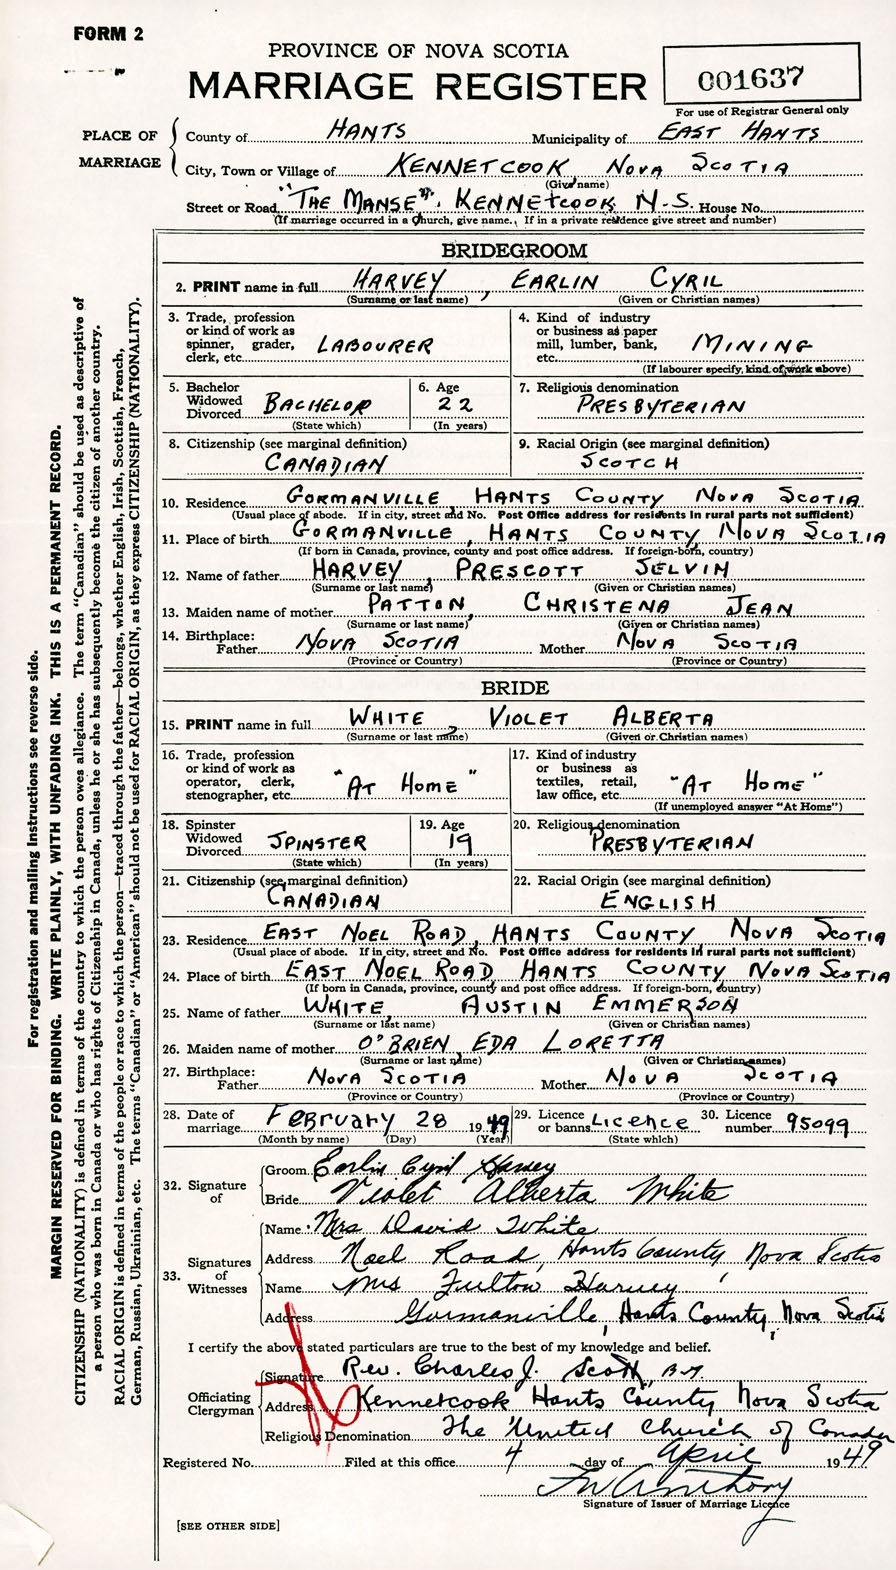 FORM 2
PROVINCE OF NOVA SCOTIA
MARRIAGE REGISTER
001637
For use of Registrar General only
PLACE OF MARRIAGE
County of HANTS Municipality of EAST HANTS
City, Town or Village of KENNETCOOK NOVA SCOTIA
(Give name)
Street or Road "THE MANSE". KENNETCOOK N.S. House No.
(If marriage occurred in a church, give name. If in a private residence give street and number)
BRIDEGROOM
2. PRINT name in full HARVEY, EARLIN CYRIL
(Surname or last name) (Given or Christian names)
3. Trade, profession or kind of work as spinner, grader, clerk, etc. LABOURER
4. Kind of industry or business as paper mill, lumber, bank, etc. MINING
(If labourer specify, kind of work above)
5. Bachelor Widowed Divorced BACHELOR
(State which)
6. Age 22
(In years)
7. Religious denomination PRESBYTERIAN
8. Citizenship (see marginal definition) CANADIAN
9. Racial Origin (see marginal definition) SCOTCH
10. Residence GORMANVILLE HANTS COUNTY NOVA SCOTIA
(Usual place of abode. If in city, street and No. Post Office address for residents in rural parts not sufficient)
11. Place of birth GORMANVILLE, HANTS COUNTY NOVA SCOTIA
(If born in Canada, province, county and post office address. If foreign-born, country)
12. Name of father HARVEY, PRESCOTT SELVIN
(Surname or last name) (Given or Christian names)
13. Maiden name of mother PATTON, CHRISTENA JEAN
(Surname or last name) (Given or Christian names)
14. Birthplace: Father NOVA SCOTIA Mother NOVA SCOTIA
(Province or Country) (Province or Country)
BRIDE
15. PRINT name in full WHITE, VIOLET ALBERTA
(Surname or last name) (Given or Christian names)
16. Trade, profession or kind of work as operator, clerk, stenographer, etc. "AT HOME"
17. Kind of industry or business as textiles, retail, law office, etc. "AT HOME"
(If unemployed answer "At Home")
18. Spinster Widowed Divorced SPINSTER
(State which)
19. Age 19
(In years)
20. Religious denomination PRESBYTERIAN
21. Citizenship (see marginal definition) CANADIAN
22. Racial Origin (see marginal definition) ENGLISH
23. Residence EAST NOEL ROAD, HANTS COUNTY NOVA SCOTIA
(Usual place of abode. If in city, street and No. Post Office address for residents in rural parts not sufficient)
24. Place of birth EAST NOEL ROAD HANTS COUNTY NOVA SCOTIA
(If born in Canada, province, county and post office address. If foreign-born, country)
25. Name of father WHITE, AUSTIN EMMERSON
(Surname or last name) (Given or Christian names)
26. Maiden name of mother O'BRIEN EDA LORETTA
(Surname or last name) (Given or Christian names)
27. Birthplace: Father NOVA SCOTIA Mother NOVA SCOTIA
(Province or Country) (Province or Country)
28. Date of marriage FEBRUARY 28 1949
(Month by name) (Day) (Year)
29. Licence or banns Licence
(State which)
30. Licence number 95099
32. Signature of
Groom Earlin Cyril Harvey
Bride Violet Alberta White
33. Signatures of Witnesses
Name Mrs David White
Address Noel Road, Hants County Nova Scotia
Name Mrs Fulton Harvey
Address Gormanville, Hants County, Nova Scotia
I certify the above stated particulars are true to the best of my knowledge and belief.
Officiating Clergyman
Signature Rev. Charles J. Scott,
Address Kennetcook Hants County Nova Scotia
Religious Denomination The United Church of Canada
Registered No. Filed at this office 4 day of April 1949
Signature of Issuer of Marriage Licence
[SEE OTHER SIDE]
For registration and mailing instructions see reverse side.
MARGIN RESERVED FOR BINDING. WRITE PLAINLY, WITH UNFADING INK. THIS IS A PERMANENT RECORD.
CITIZENSHIP (NATIONALITY) is defined in terms of the country to which the person owes allegiance. The term "Canadian" should be used as descriptive of
a person who was born in Canada or who has rights of Citizenship in Canada, unless he or she has subsequently become the citizen of another country.
RACIAL ORIGIN is defined in terms of the people or race to which the person—traced through the father—belongs, whether English, Irish, Scottish, French,
German, Russian, Ukrainian, etc. The terms "Canadian" or "American" should not be used for RACIAL ORIGIN, as they express CITIZENSHIP (NATIONALITY).